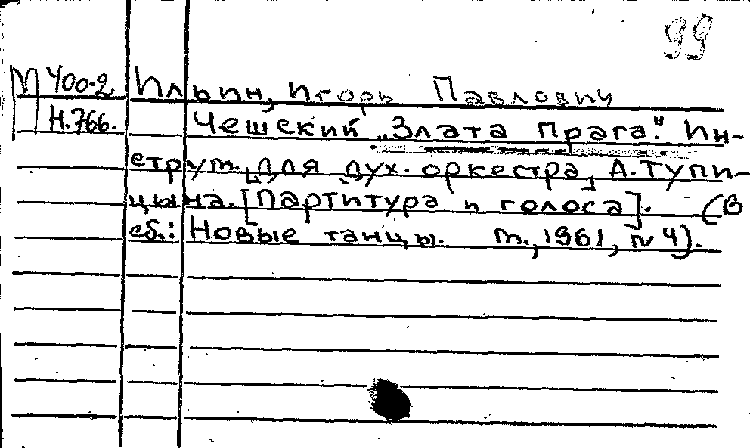 99
М 400-2 Ильин, Игорь Павлович
Н.766. Чешский „Злата Прага." Ин-
струм. [для дух. оркестра] А. Тупи-
цына. [Партитура и голоса]. (В
сб.: Новые танцы. М., 1961, № 4).